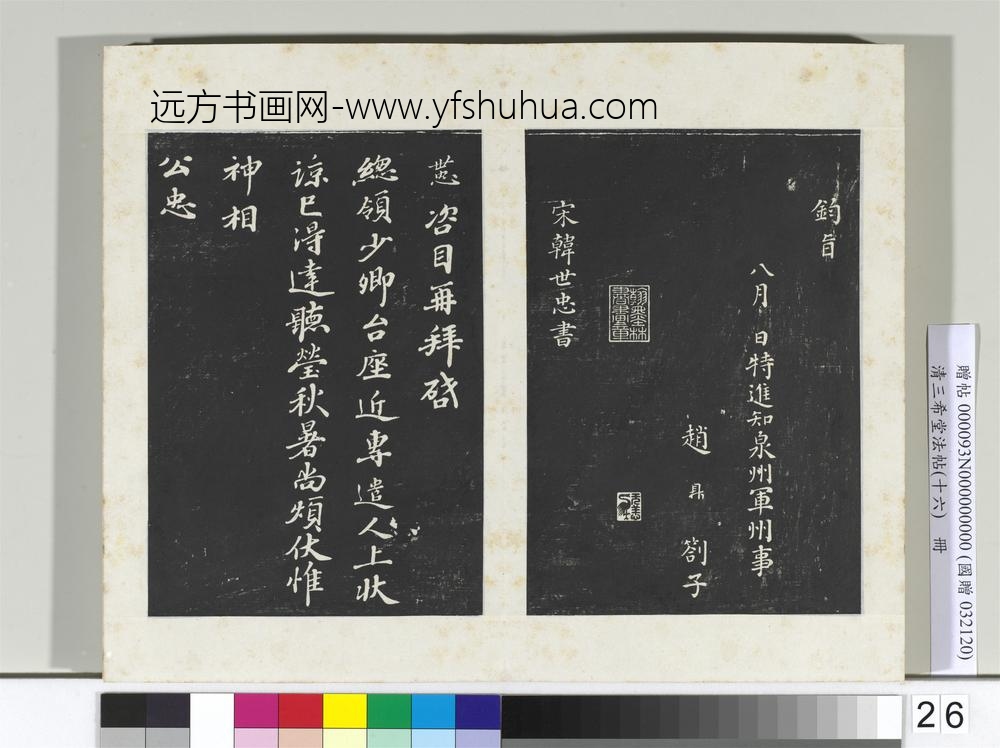 远方书画网-www.yfshuhua.com
鈞旨
八月 日特進知泉州軍州事
趙鼎劄子
宋韓世忠書
咨目再拜啓
總領少卿台座近專遣人上狀
諒已得達聽瑩秋暑尚煩伏惟
神相
公忠
贈帖 000093N000000000 (國贈 032120)
清三希堂法帖(十六) 冊
26